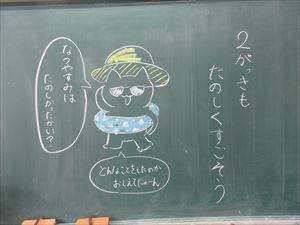 2がっきも
たのしくすごそう
なつやすみは
たのしかったかい?
どんなことをしたのか
おしえてにゃーん